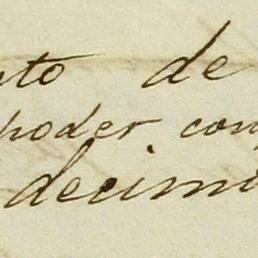 nto de
poder con
decimi